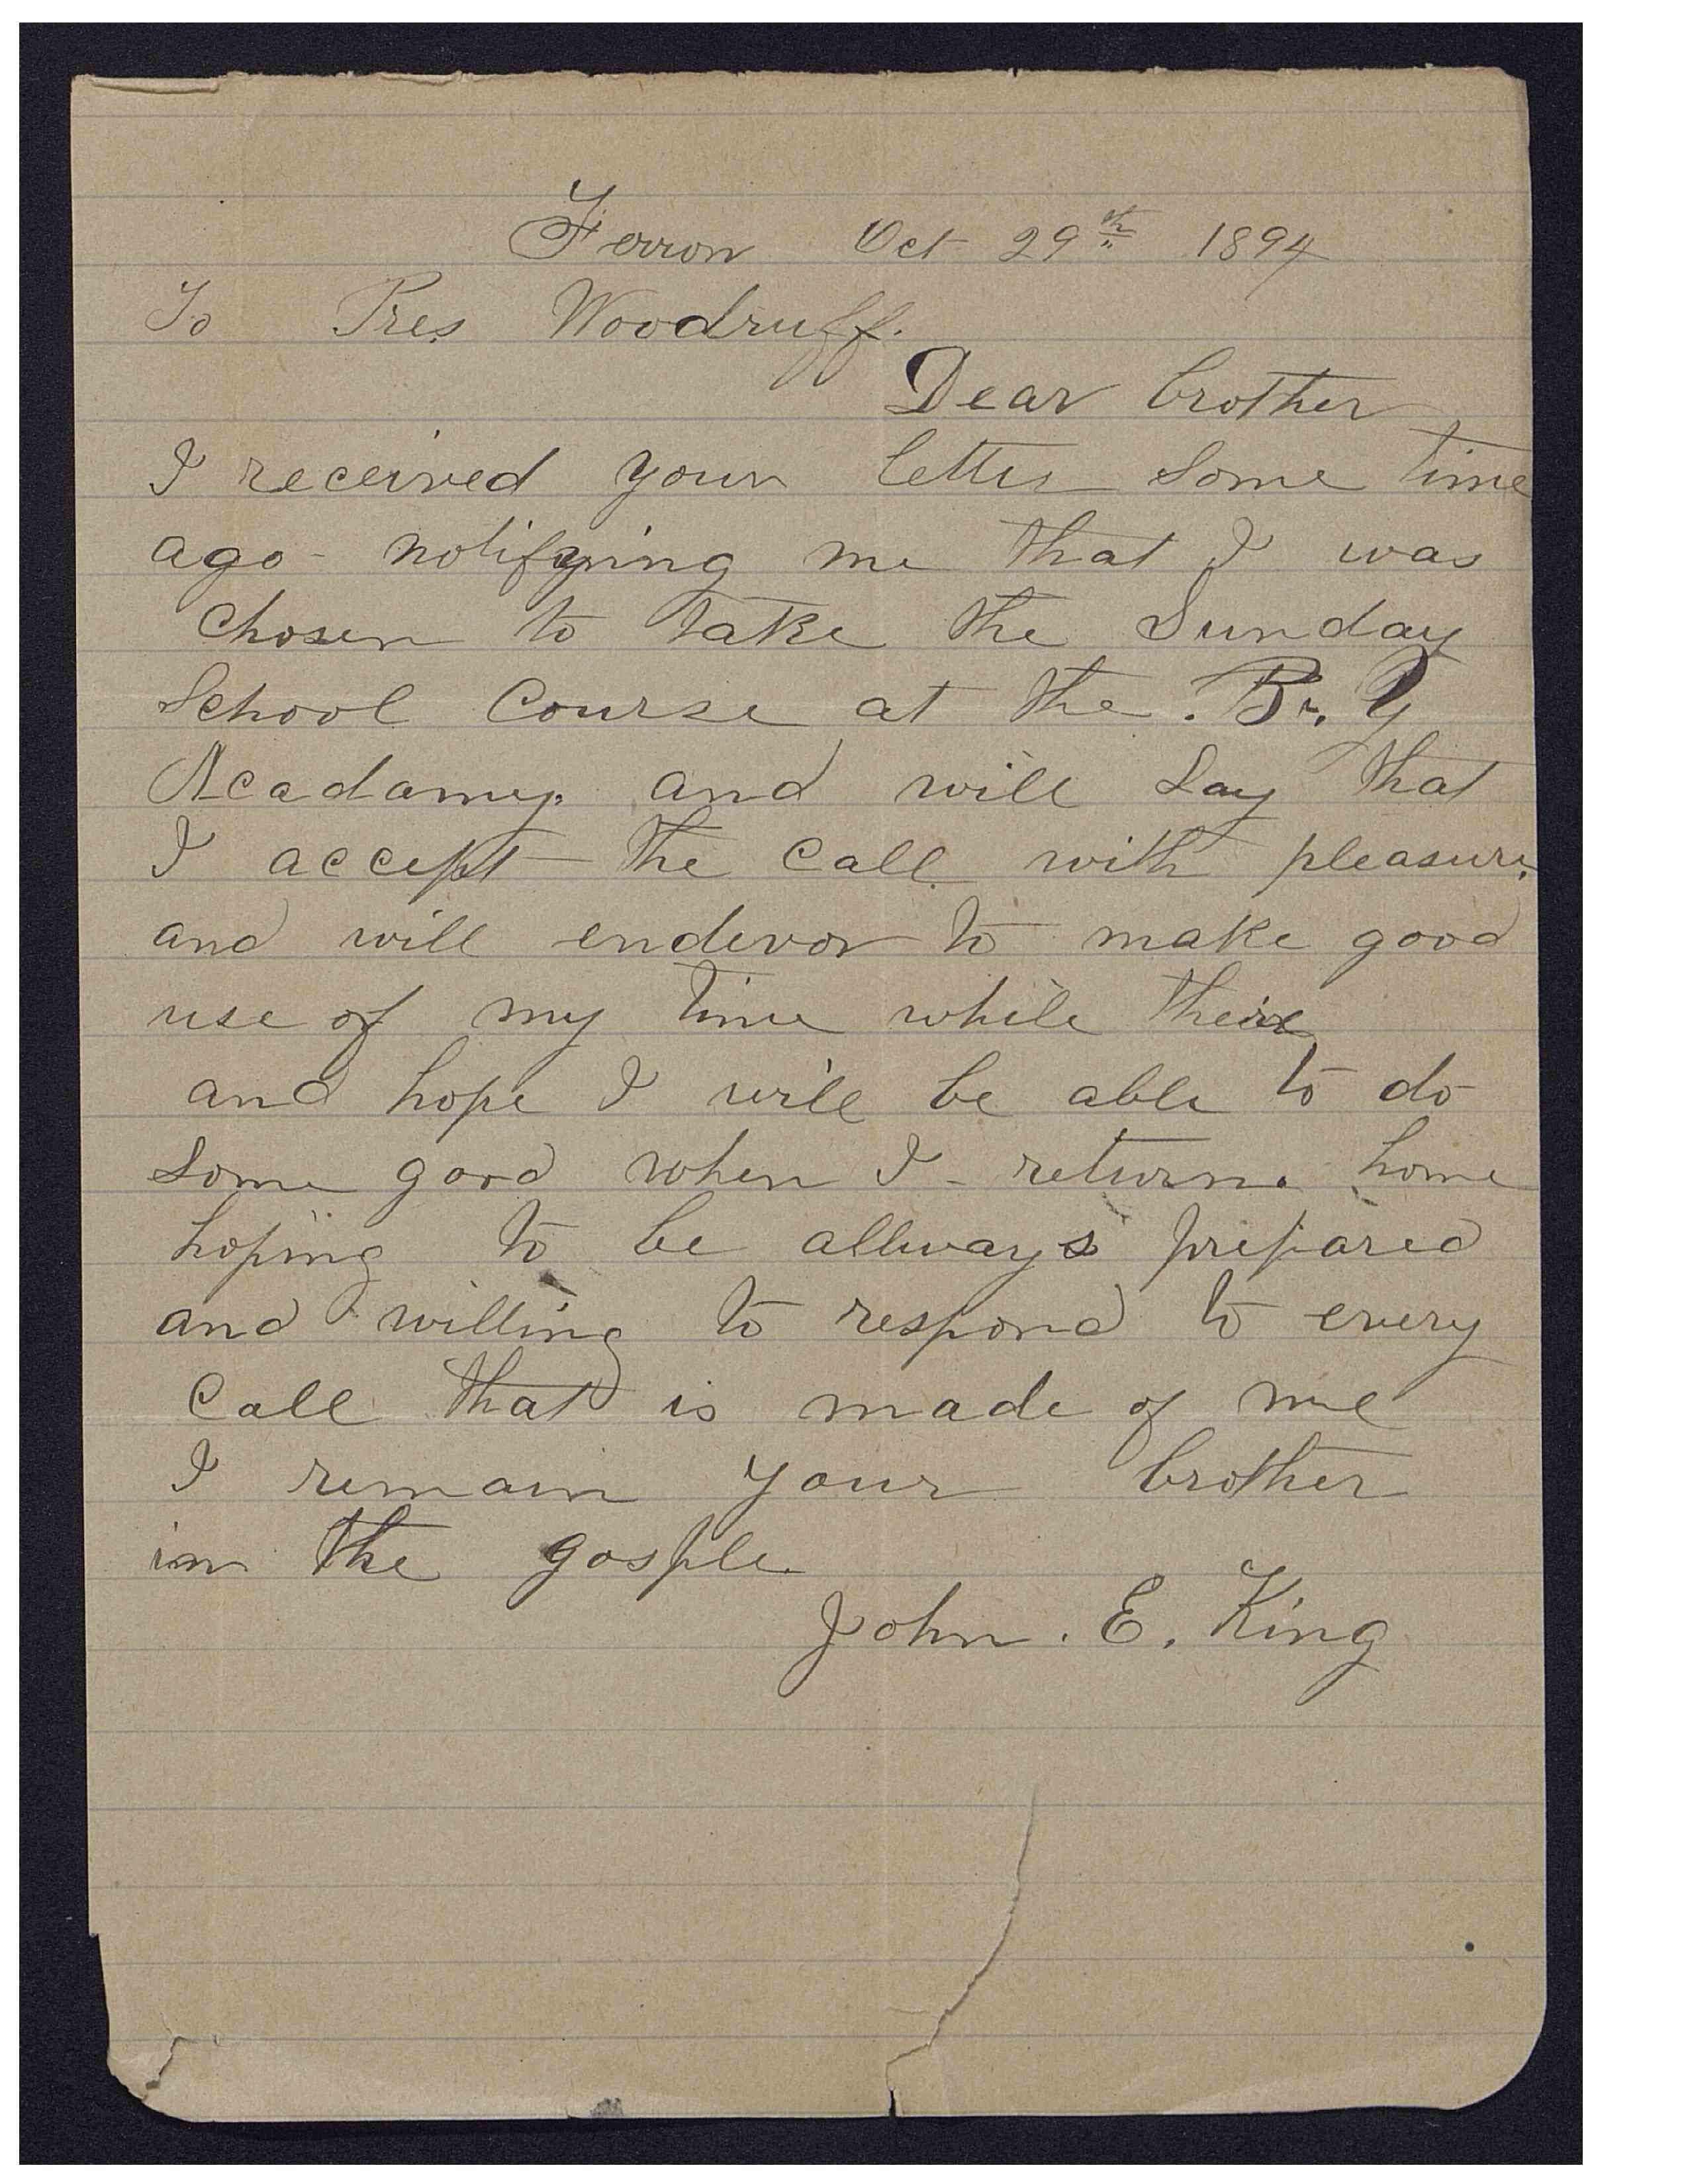 Ferron Oct 29th 1894
To Pres Woodruff.
Dear brother
I received your letter some time
ago notifying me that I was
chosen to take the Sunday
School Course at the B. Y
Acadamy. and will say that
I accept the call with pleasure,
and will endevor to make good
use of my time while there
and hope I will be able to do
some good when I return. home
hoping to be allways prepared
and willing to respond to every
Call that is made of me
I remain your brother
in the gosple.
John. E. King